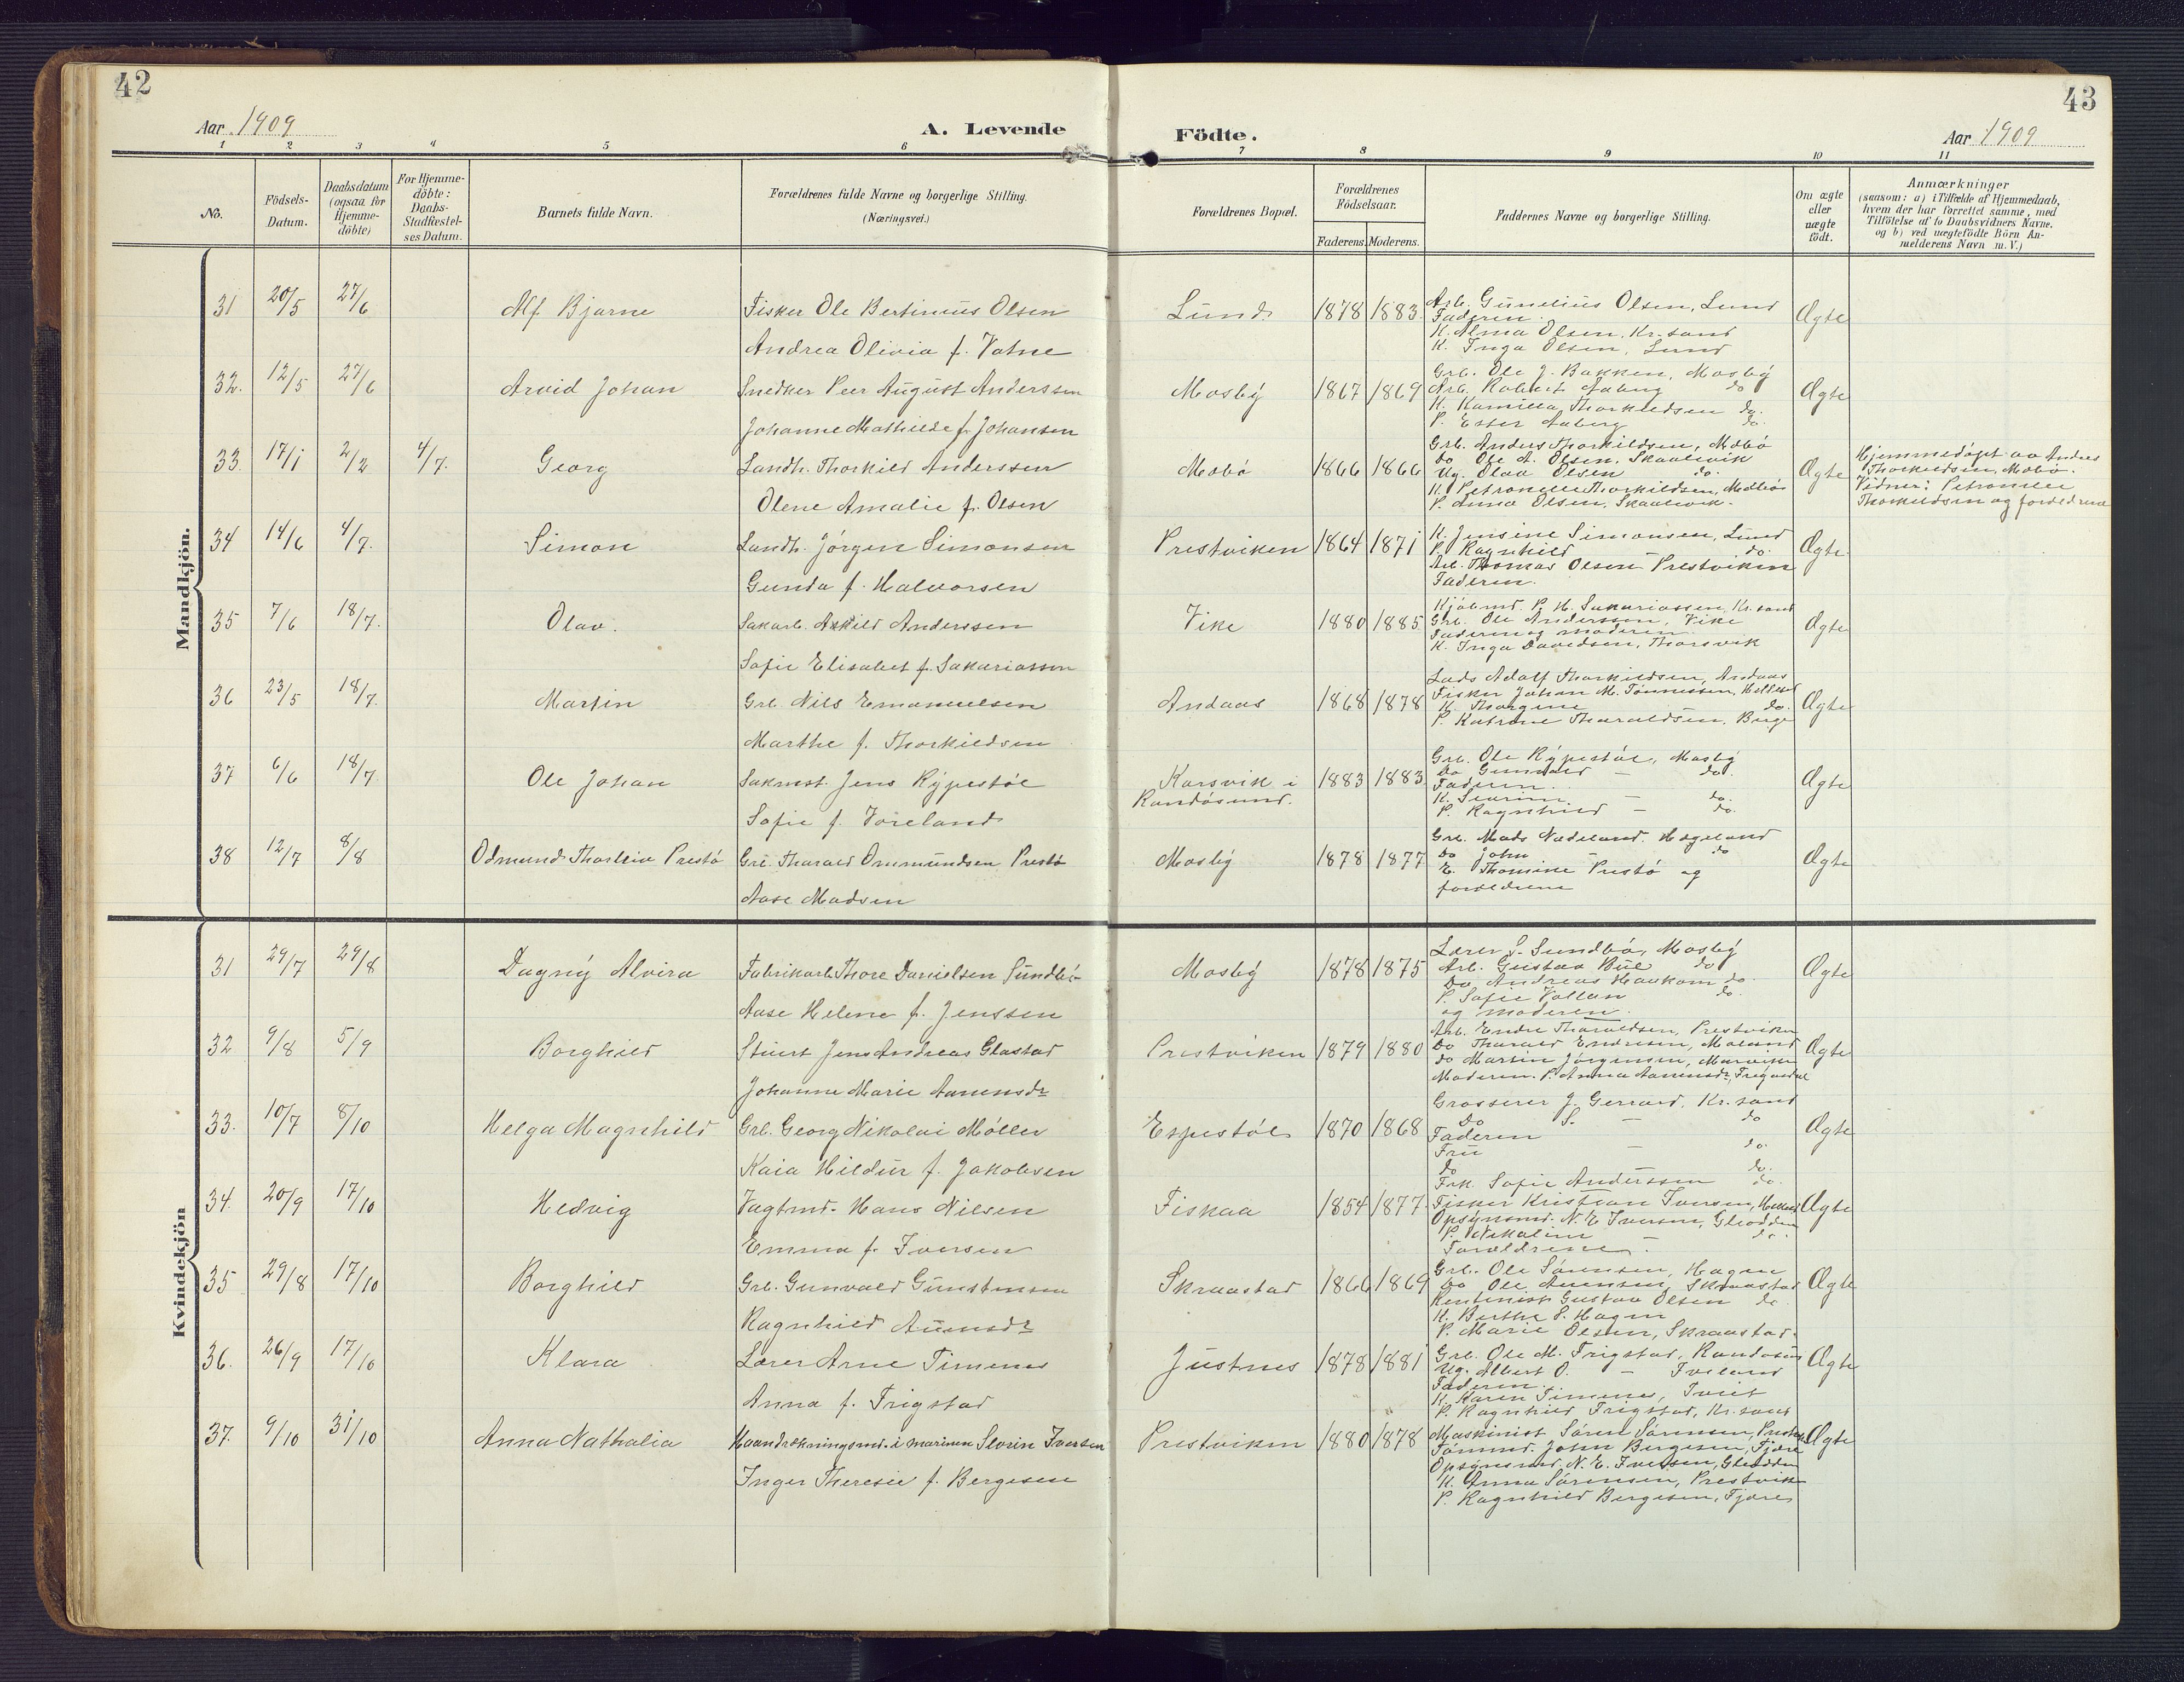 42
43
Aar 1909
A. Levende
Födte.
Aar 1909
1 2 3 4 5 6 7 8 9 10 11
No.
Födsels-
Datum.
Daabsdatum
(ogsaa for
Hjemme-
döbte)
For Hjemme-
döbte:
Daabs-
Stadfestel-
ses Datum.
Barnets fulde Navn.
Forældrenes fulde Navne og borgerlige Stilling.
(Næringsvei.)
Forældrenes Bopæl.
Forældrenes
Födselsaar.
Faderens. Moderens.
Faddernes Navne og borgerlige Stilling.
Om ægte
eller
uægte
födt.
Anmærkninger
(saasom: a) i Tilfælde af Hjemmedaab,
hvem der har forrettet samme, med
Tilföielse af to Daabsvidners Navne.
og b) ved uægtefödte Börn An-
melderens Navn m. V.)
Mandkjön.
31 20/5 27/6 Alf Bjarne Fisker Ole Bertinius Olsen Lund 1878 1883 Ægte
Andrea Olivia f. Vatne
Arb. Gunelius Olsen, Lund
Faderen.
K. Alma Olsen, Kr.sand
K. Inga Olsen, Lund
32. 12/5 27/6 Arvid Johan Snedker Peer August Anderssen Mosby 1867 1869 Ægte
Johanne Mathilde f. Johansen
Grb. Ole J. Bakken, Mosby
Arb. Robert Aaberg do
K. Kamilla Thorkildsen do.
P. Ester Aaberg do.
33. 17/1 2/2 4/7. Georg Landh. Thorkild Anderssen Mobö 1866 1866 Ægte
Olene Amalie f. Olsen
Grb. Anders Thorkildsen, Mobö
do Ole A. Olsen, Skaalevik
Ug. Olaa Olsen do.
K. Petronelle Thorkildsen, Mobö
P. Anna Olsen, Skaalevik.
Hjemmedöpt av Anders
Thorkildsen, Mobö.
Vidner: Petronelle
Thorkildsen og forældrene
34 14/6 4/7. Simon Landh. Jörgen Simonsen Prestviken 1864 1871 Ægte
Gunda f. Halvorsen
K. Jensine Simonsen, Lund
P. Ragnhild do.
Arb. Thomas Olsen Prestviken
Faderen.
35 7/6 18/7. Olav. Sakarb. Askild Anderssen Vike 1880 1885 Ægte
Sofie Elisabet f. Sakariassen
Kjöbmd. P. H. Sakariassen, Kr.sand
Grb. Ole Anderssen, Vike
Faderen og moderen.
K. Inga Davidsen, Thorsvik
36 23/5 18/7. Martin Grb. Nils Emanuelsen Andaas 1868 1878 Ægte
Marthe f. Thorkildsen
Lods Adolf Thorkildsen, Andaas
Fisker Johan M. Tönnessen,
K. Thorgine do.
P. Katrine Tharaldsen, Berge
37 6/6 18/7 Ole Johan Sakmst. Jens Rypestöl Korsvik i 1883 1883 Ægte
Randösund.
Sofie f. Voreland
Grb. Ole Rypestöl, Mosby
Do Gunvald — do.
Faderen.
K. Severine — do.
P. Ragnhild — do.
38 12/7 8/8 Odmund Thorleiv Prestö Grb. Tharald Ommundsen Prestö Mosby 1878 1877 Ægte
Aase Madsen
Grb. Mads Nadeland. Hægeland
Do John — do
E. Thomine Prestö og
forældrene
Kvindekjön
31 29/7 29/8 Dagny Alvira Fabrikarb. Thore Danielsen Sundbö Mosby 1878 1875 Ægte
Aase Helene f. Jenssen
Lærer S. Sundbö, Mosby
Arb. Gustav Bue do
Do Andreas Haukom do.
P. Sofie Vollan do.
og moderen.
32 9/8 5/9 Borghild Stuert Jens Andreas Glastad Prestviken 1879 1880 Ægte
Johanne Marie Aanensdr
Arb. Endre Tharaldsen, Prestviken
Do Tharald Endresen, Moland
do Martin Jörgensen, Marviken
Moderen. P. Anna Aanensdr,
33. 10/7 8/10 Helga Magnhild Grb. Georg Nikolai Möller Espestöl 1870 1868 Ægte
Kaia Hildur f. Jakobsen
Grosserer J. Gerrard, Kr.sand
Do S. — do
Faderen
Fru — do.
do do.
Frk. Sofie Anderssen do.
34. 20/9 17/10 Hedvig Vagtmd. Hans Nilsen Fiskaa 1854 1877. Ægte
Emma f. Iversen
Fisker Kristian Iversen,
Opsynsmd. N. E Iversen, Gleodden
P. Nikoline — do.
Forældrene.
35 29/8 17/10 Borghild Grb. Gunvald Gunstensen Skraastad 1866 1869 Ægte
Ragnhild Auensdr
Grb. Ole Sörensen, Hagen
Do Ole Auensen, Skraastad
Rentenist Gustav Olsen do
K. Berthe S. Hagen
P. Marie Olsen, Skraastad.
36. 26/9 17/10 Klara Lærer Arne Timenes Justnes 1878 1881 Ægte
Anna f. Frigstad
Grb. Ole M. Frigstad, Randösund
Ug. Albert O. — Iveland
Faderen.
K. Karen Timenes, Tveit
P. Ragnhild Frigstad, Kr.sand
37. 9/10 31/10 Anna Nathalia Haandrækningsmd. i marinen Severin Iversen Prestviken 1880 1878 Ægte
Inger Theresie f. Bergesen
Maskinist Sören Sörensen,
Tömmd. John Bergesen, Fjære
Opsynsmd. N. E. Iversen, Gleodden
K. Anna Sörensen, Prestvik
P. Ragnhild Bergesen, Fjære